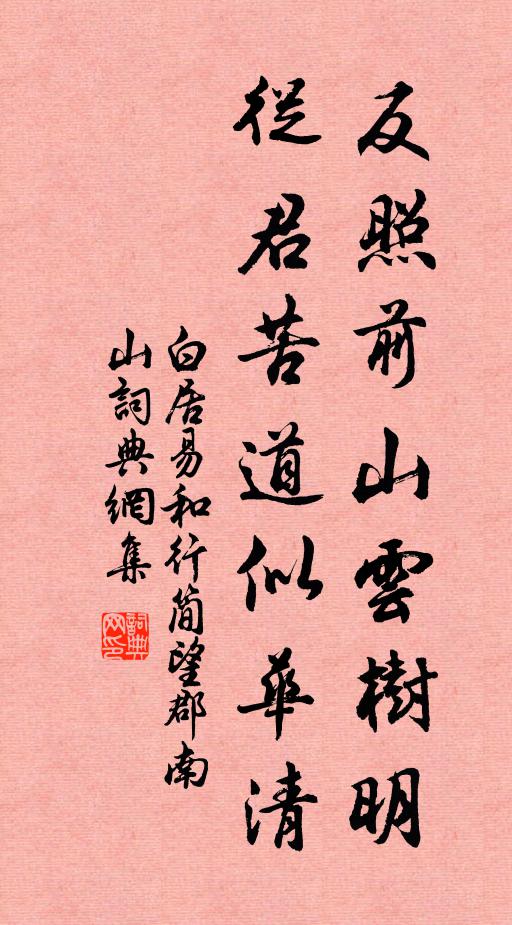 反照前山雲樹明
從君苦道似華清
白居易和行简望郡南
山詞典網集
詞典网印